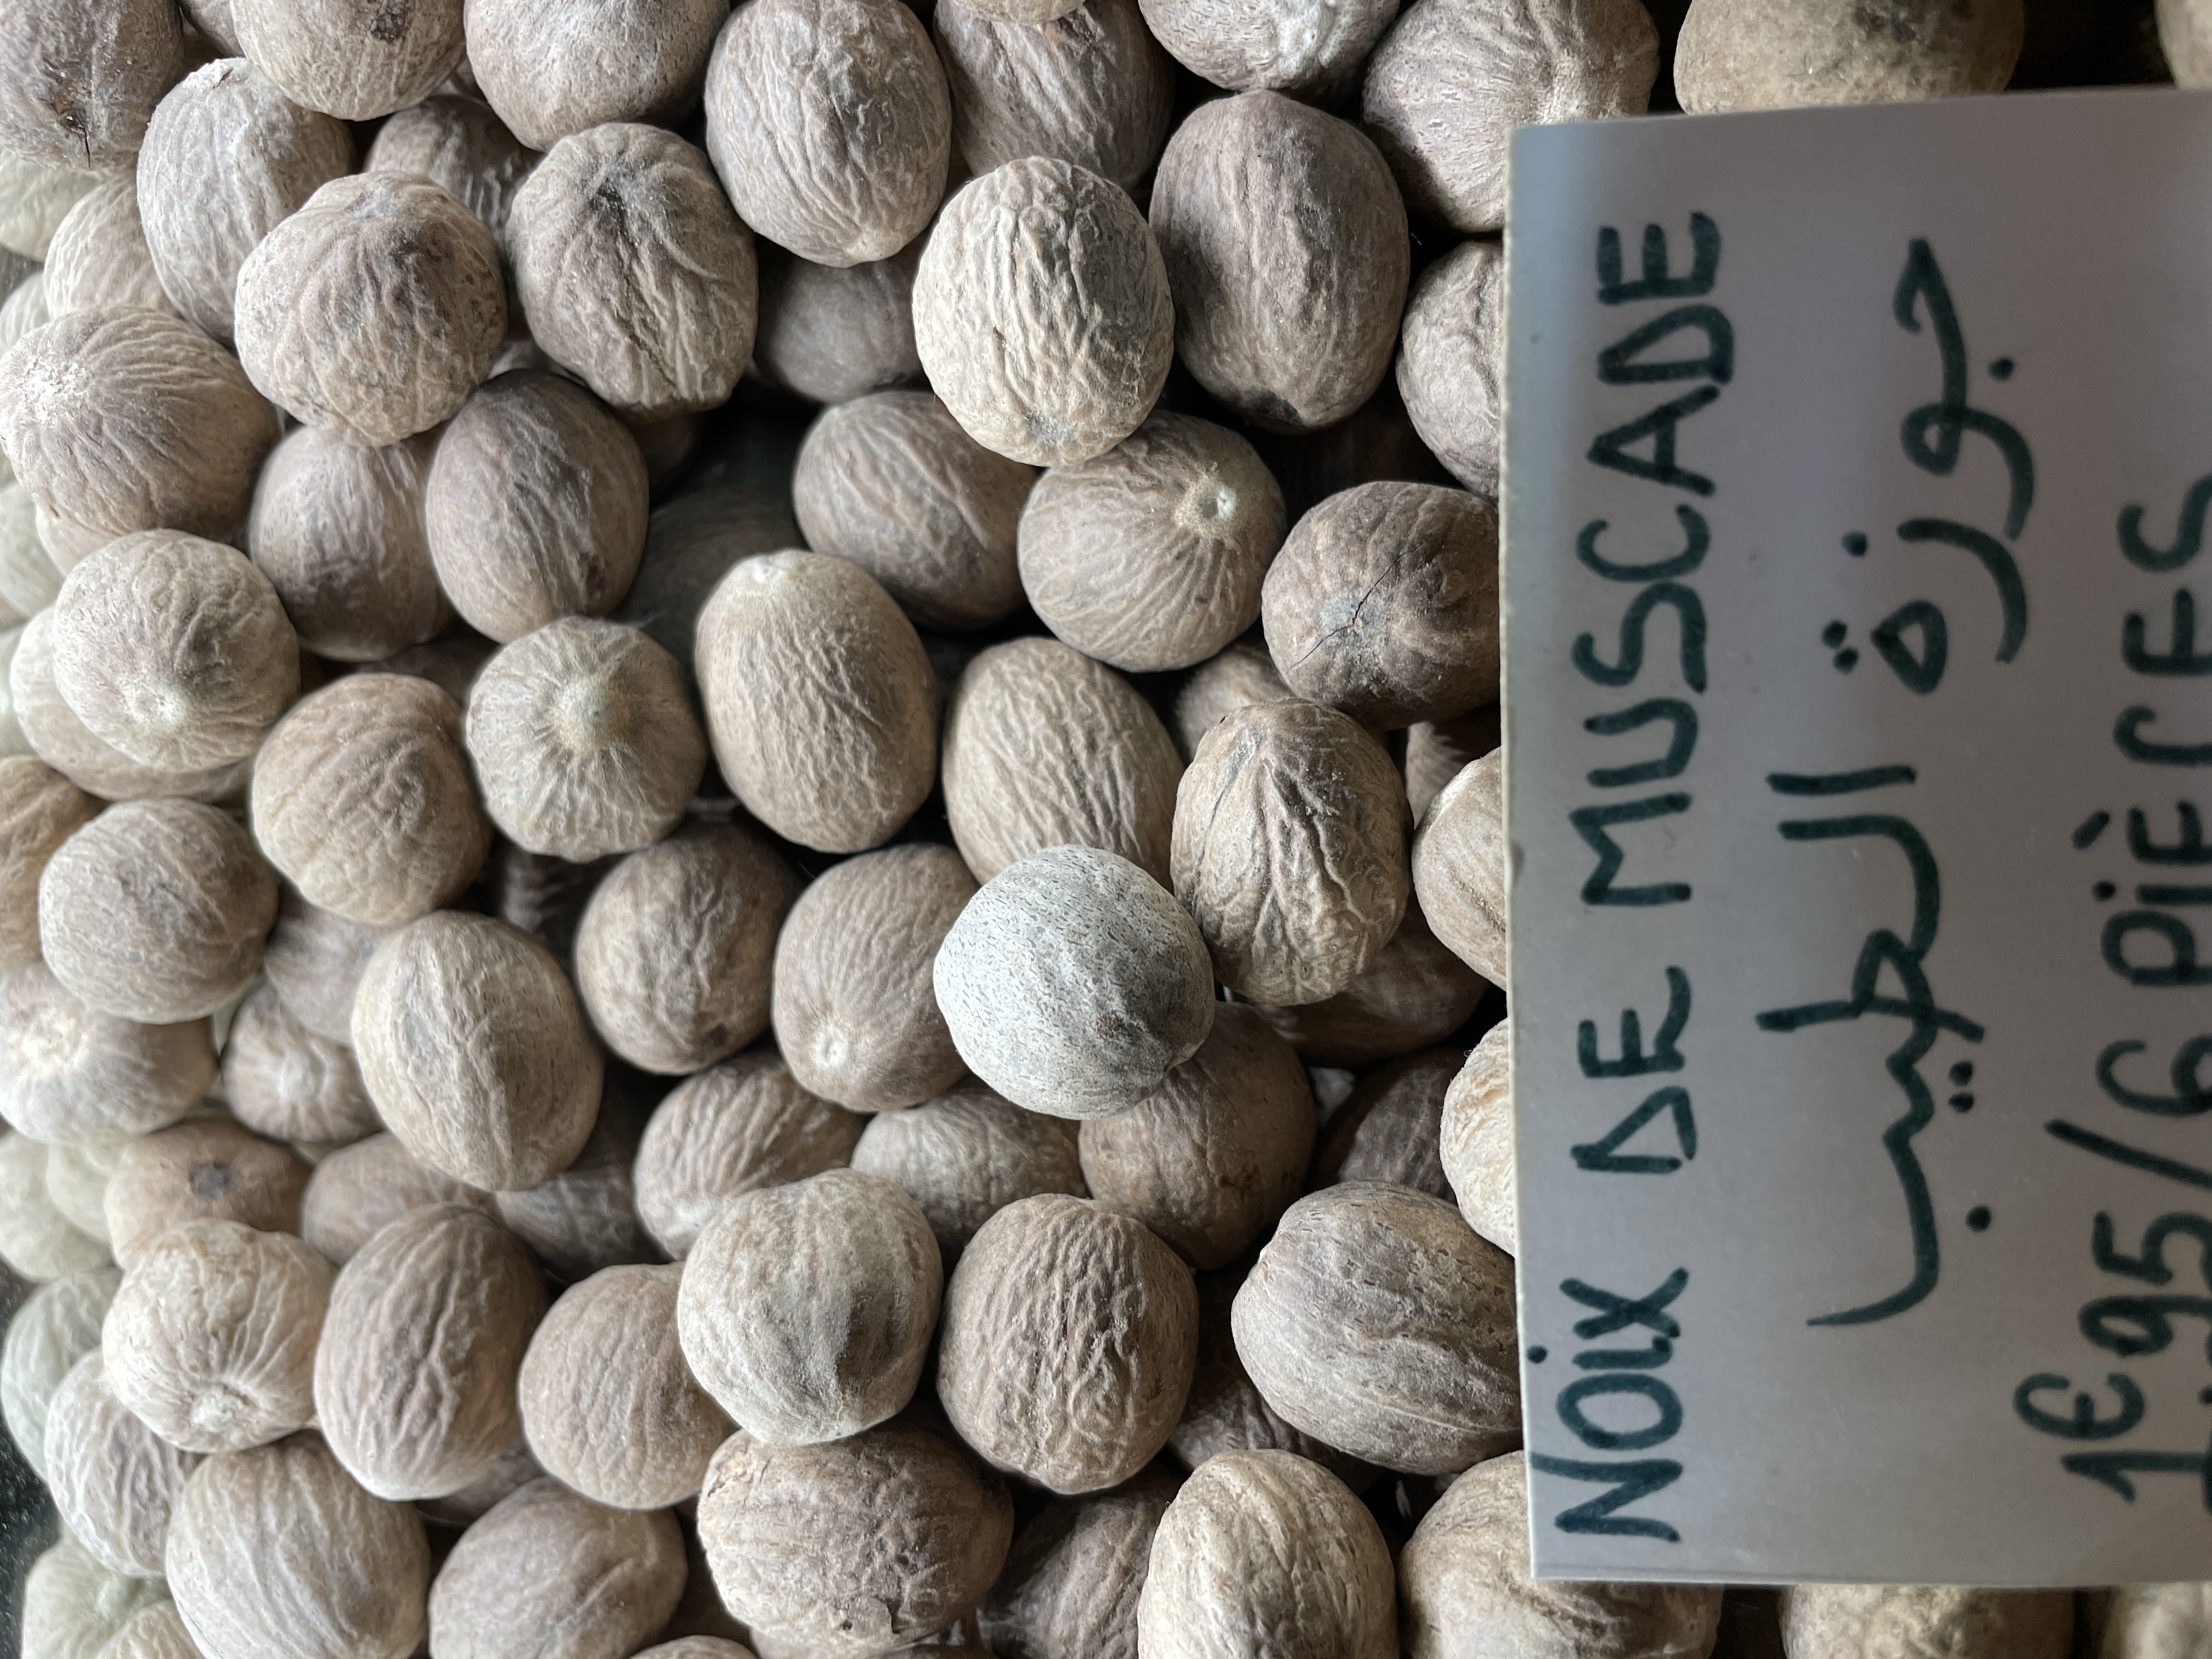 NOiX DE MUSCADE
جوزة الطيب
1€.95/6 PiÈCES